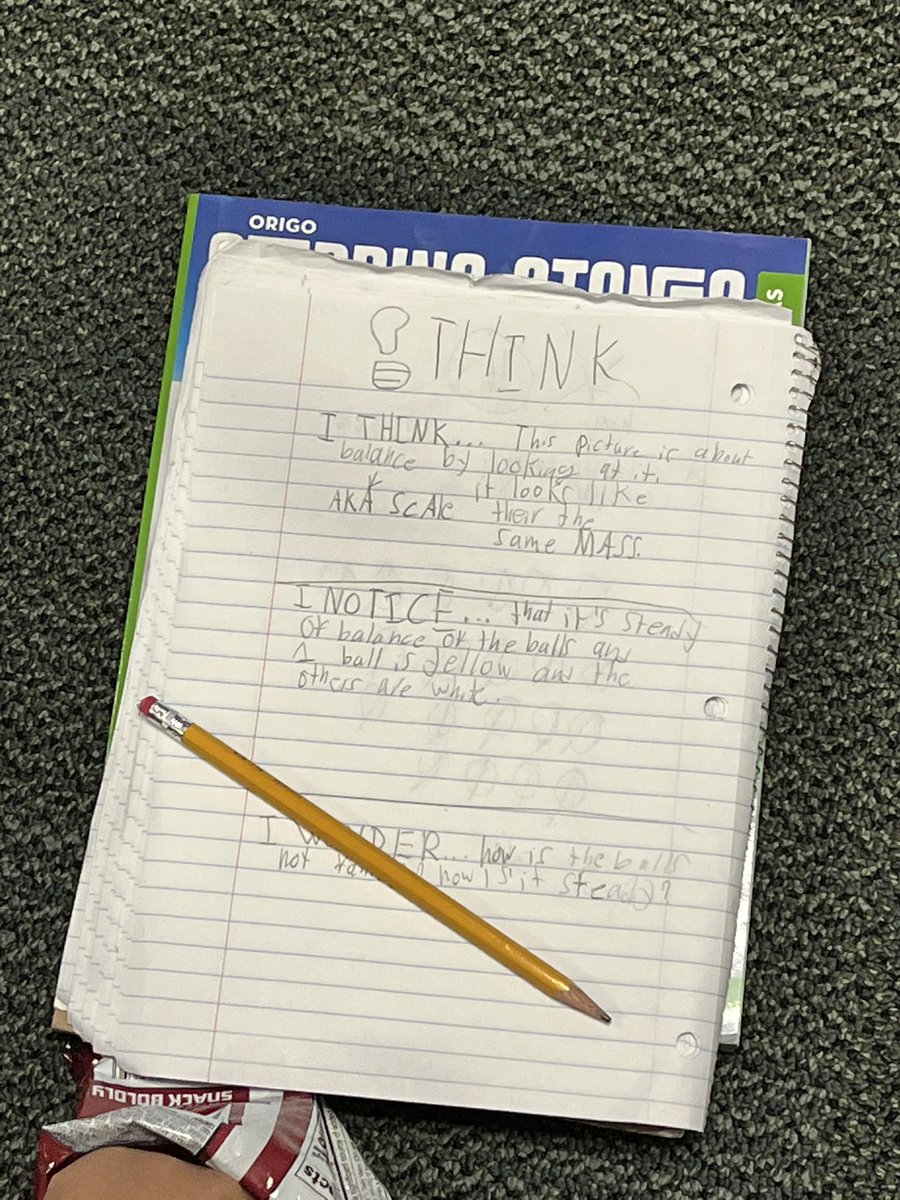 ORIGO
STEPPING STONES
THINK
I THINK... This picture is about
balance by looking at it.
AKA SCAle
it looks like
their the
same MASS.
I NOTICE... that it's steady
of balance of the balls and
1 ball is yellow and the
others are white.
I WONDER... how is the balls
not how is it steady?
SNACK BOLDLY